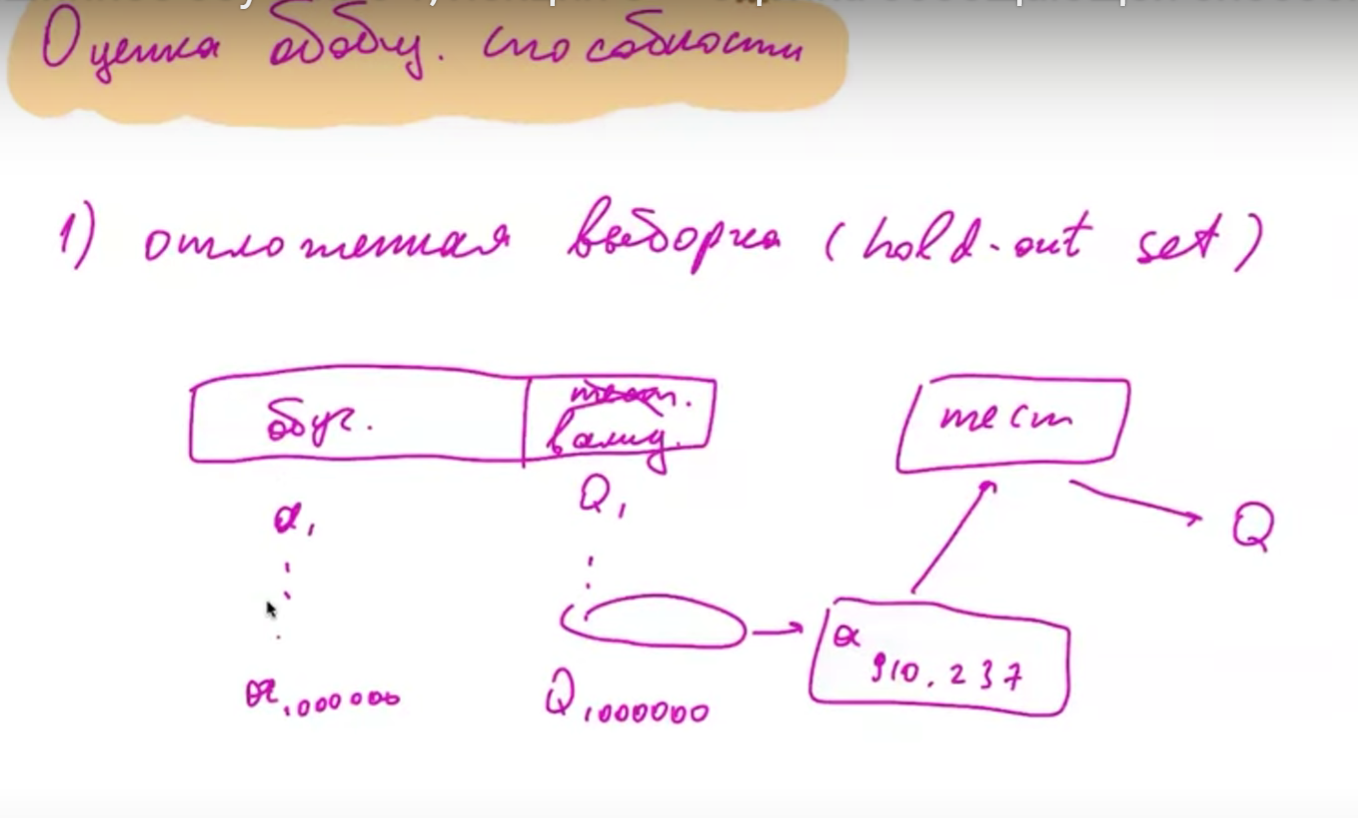 Оценка обобщ. способности
1) отложенная выборка (hold-out set)
обуч.
тест.
валид.
тест
a₁
Q₁
Q
a
910.237
a₁₀₀₀₀₀₀
Q₁₀₀₀₀₀₀